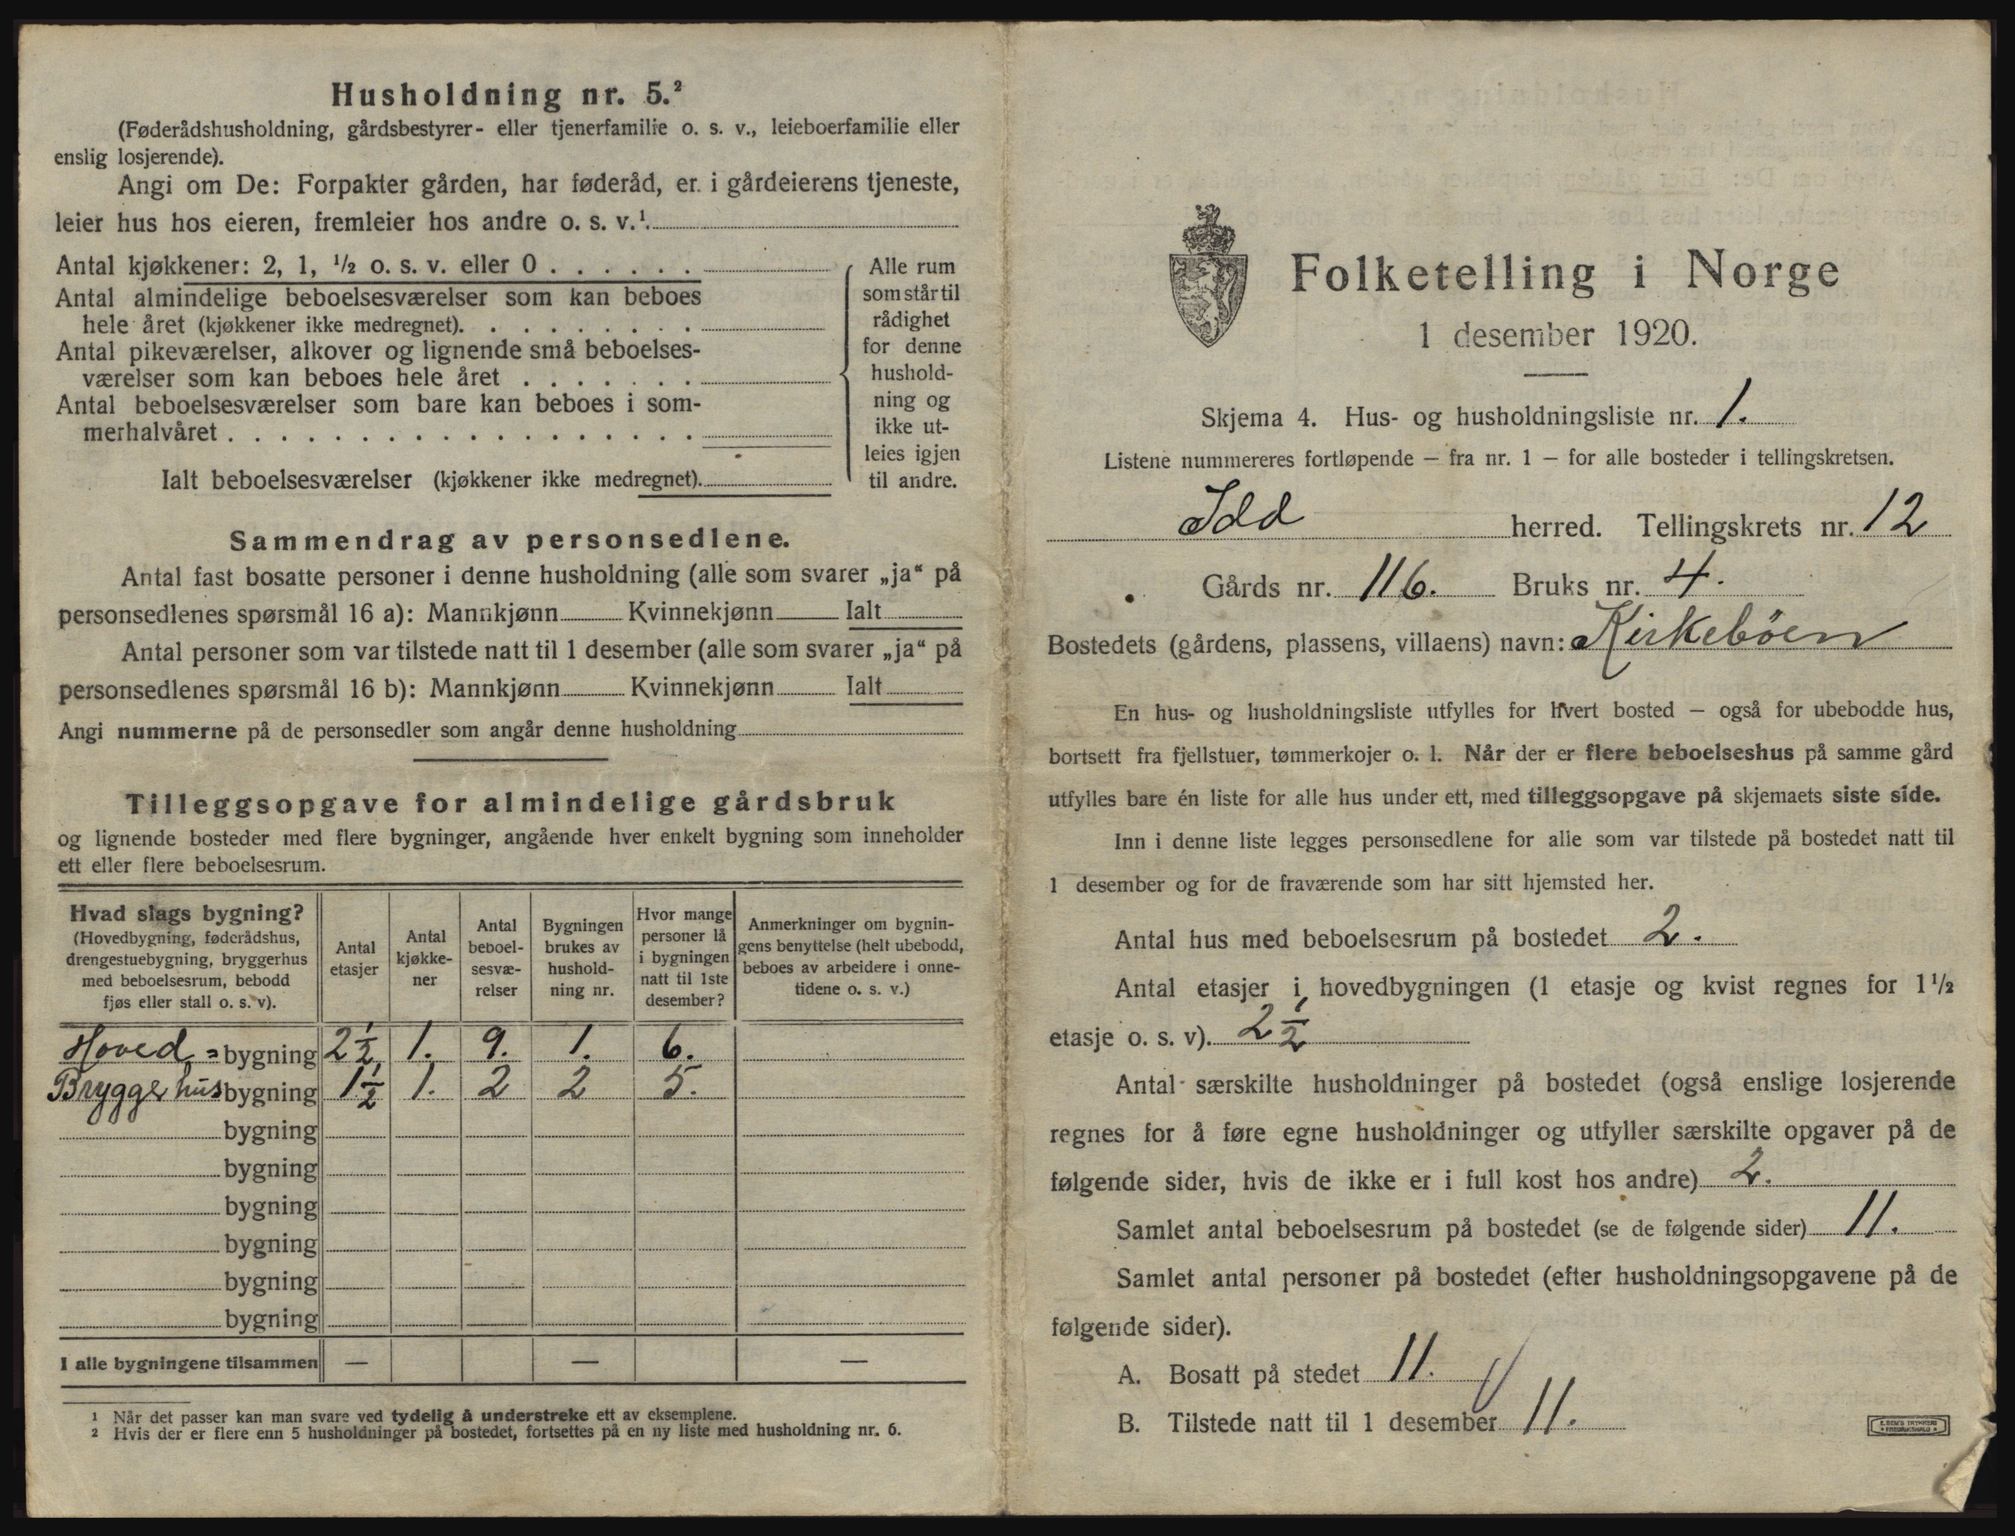 Husholdning nr. 5.²
(Føderådshusholdning, gårdsbestyrer- eller tjenerfamilie o. s. v., leieboerfamilie eller
enslig losjerende).
Angi om De: Forpakter gården, har føderåd, er i gårdeierens tjeneste,
leier hus hos eieren, fremleier hos andre o. s. v.¹.
Antal kjøkkener: 2, 1, ½ o. s. v. eller 0 . . . . . .
Antal almindelige beboelsesværelser som kan beboes
hele året (kjøkkener ikke medregnet). . . . . . . . .
Antal pikeværelser, alkover og lignende små beboelses-
værelser som kan beboes hele året . . . . . . .
Antal beboelsesværelser som bare kan beboes i som-
merhalvåret . . . . . . . . . . . . . . . . . .
Ialt beboelsesværelser (kjøkkener ikke medregnet).
Alle rum
som står til
rådighet
for denne
hushold-
ning og
ikke ut-
leies igjen
til andre.
Sammendrag av personsedlene.
Antal fast bosatte personer i denne husholdning (alle som svarer „ja“ på
personsedlenes spørsmål 16 a): Mannkjønn Kvinnekjønn Ialt
Antal personer som var tilstede natt til 1 desember (alle som svarer „ja“ på
personsedlenes spørsmål 16 b): Mannkjønn Kvinnekjønn Ialt
Angi nummerne på de personsedler som angår denne husholdning
Tilleggsopgave for almindelige gårdsbruk
og lignende bosteder med flere bygninger, angående hver enkelt bygning som inneholder
ett eller flere beboelsesrum.
Hvad slags bygning?
(Hovedbygning, føderådshus,
drengestuebygning, bryggerhus
med beboelsesrum, bebodd
fjøs eller stall o. s. v).
Antal
etasjer
Antal
kjøkke-
ner
Antal
beboel-
sesvæ-
relser
Bygningen
brukes av
hushold-
ning nr.
Hvor mange
personer lå
i bygningen
natt til 1ste
desember?
Anmerkninger om bygnin-
gens benyttelse (helt ubebodd,
beboes av arbeidere i onne-
tidene o. s. v.)
Hoved = bygning 2½ 1. 9. 1. 6.
Bryggehus bygning 1½ 1. 2 2 5.
bygning
bygning
bygning
bygning
bygning
bygning
I alle bygningene tilsammen — — —
¹ Når det passer kan man svare ved tydelig å understreke ett av eksemplene.
² Hvis der er flere enn 5 husholdninger på bostedet, fortsettes på en ny liste med husholdning nr. 6.
Folketelling i Norge
1 desember 1920.
Skjema 4. Hus- og husholdningsliste nr. 1.
Listene nummereres fortløpende — fra nr. 1 — for alle bosteder i tellingskretsen.
Idd herred. Tellingskrets nr. 12
Gårds nr. 116. Bruks nr. 4.
Bostedets (gårdens, plassens, villaens) navn: Kirkebøen
En hus- og husholdningsliste utfylles for hvert bosted — også for ubebodde hus,
bortsett fra fjellstuer, tømmerkojer o. l. Når der er flere beboelseshus på samme gård
utfylles bare én liste for alle hus under ett, med tilleggsopgave på skjemaets siste side.
Inn i denne liste legges personsedlene for alle som var tilstede på bostedet natt til
1 desember og for de fraværende som har sitt hjemsted her.
Antal hus med beboelsesrum på bostedet 2.
Antal etasjer i hovedbygningen (1 etasje og kvist regnes for 1½
etasje o. s. v). 2½
Antal særskilte husholdninger på bostedet (også enslige losjerende
regnes for å føre egne husholdninger og utfyller særskilte opgaver på de
følgende sider, hvis de ikke er i full kost hos andre) 2.
Samlet antal beboelsesrum på bostedet (se de følgende sider) 11.
Samlet antal personer på bostedet (efter husholdningsopgavene på de
følgende sider).
A. Bosatt på stedet 11.
B. Tilstede natt til 1 desember 11.
E. SEM'S TRYKKERI
FREDRIKSHALD